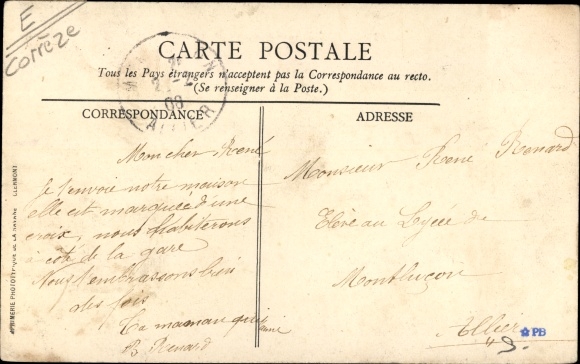 E
Corrèze
CARTE POSTALE
Tous les Pays étrangers n'acceptent pas la Correspondance au recto.
(Se renseigner à la Poste.)
CORRESPONDANCE
Mon cher René
Je t'envoie notre maison
elle est marquée d'une
croix, nous habiterons
à côté de la gare
Nous t'embrassons bien
des fois
Ta maman qui t'aime
B Renard
ADRESSE
Monsieur René Renard
Elève au Lycée de
Montluçon
Allier
ALLIER
08
PB